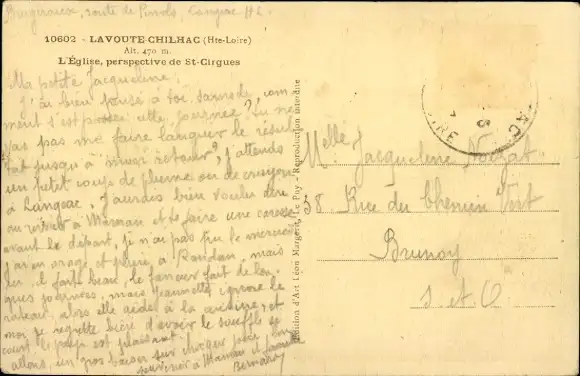 route de Pinols, Langeac H.L.
10602 - LAVOUTE-CHILHAC (Hte-Loire)
Alt. 470 m.
L'Église, perspective de St-Cirgues
Ma petite Jacqueline.
J'ai bien pensé à toi, samedi, com
ment s'est passée cette journée? Tu ne
vas pas me faire languer le résul
tat jusqu'à mon retour? J'attends
un petit coup de plume ou de crayon
à Langeac. J'aurais bien voulu dire
au revoir à Maman et te faire une caresse
avant le départ, je n'ai pas pu le mercredi
J'ai eu orage et pluie à Randan, mais
ici il fait beau, le faneur fait de lon
gues journées, mais Jeannette ignore le
rateau, alors elle aide à la cuisine, et
moi je regrette bien d'avoir le souffle si
court le pays est plaisant.
allons, un gros baiser sur chaque joue, bon
souvenir à Maman et
Bernard
Édition d'Art Léon Margerit, Le Puy - Reproduction interdite
Melle Jacqueline Noizat
38 Rue du Chemin Vert
Brunoy
S et O